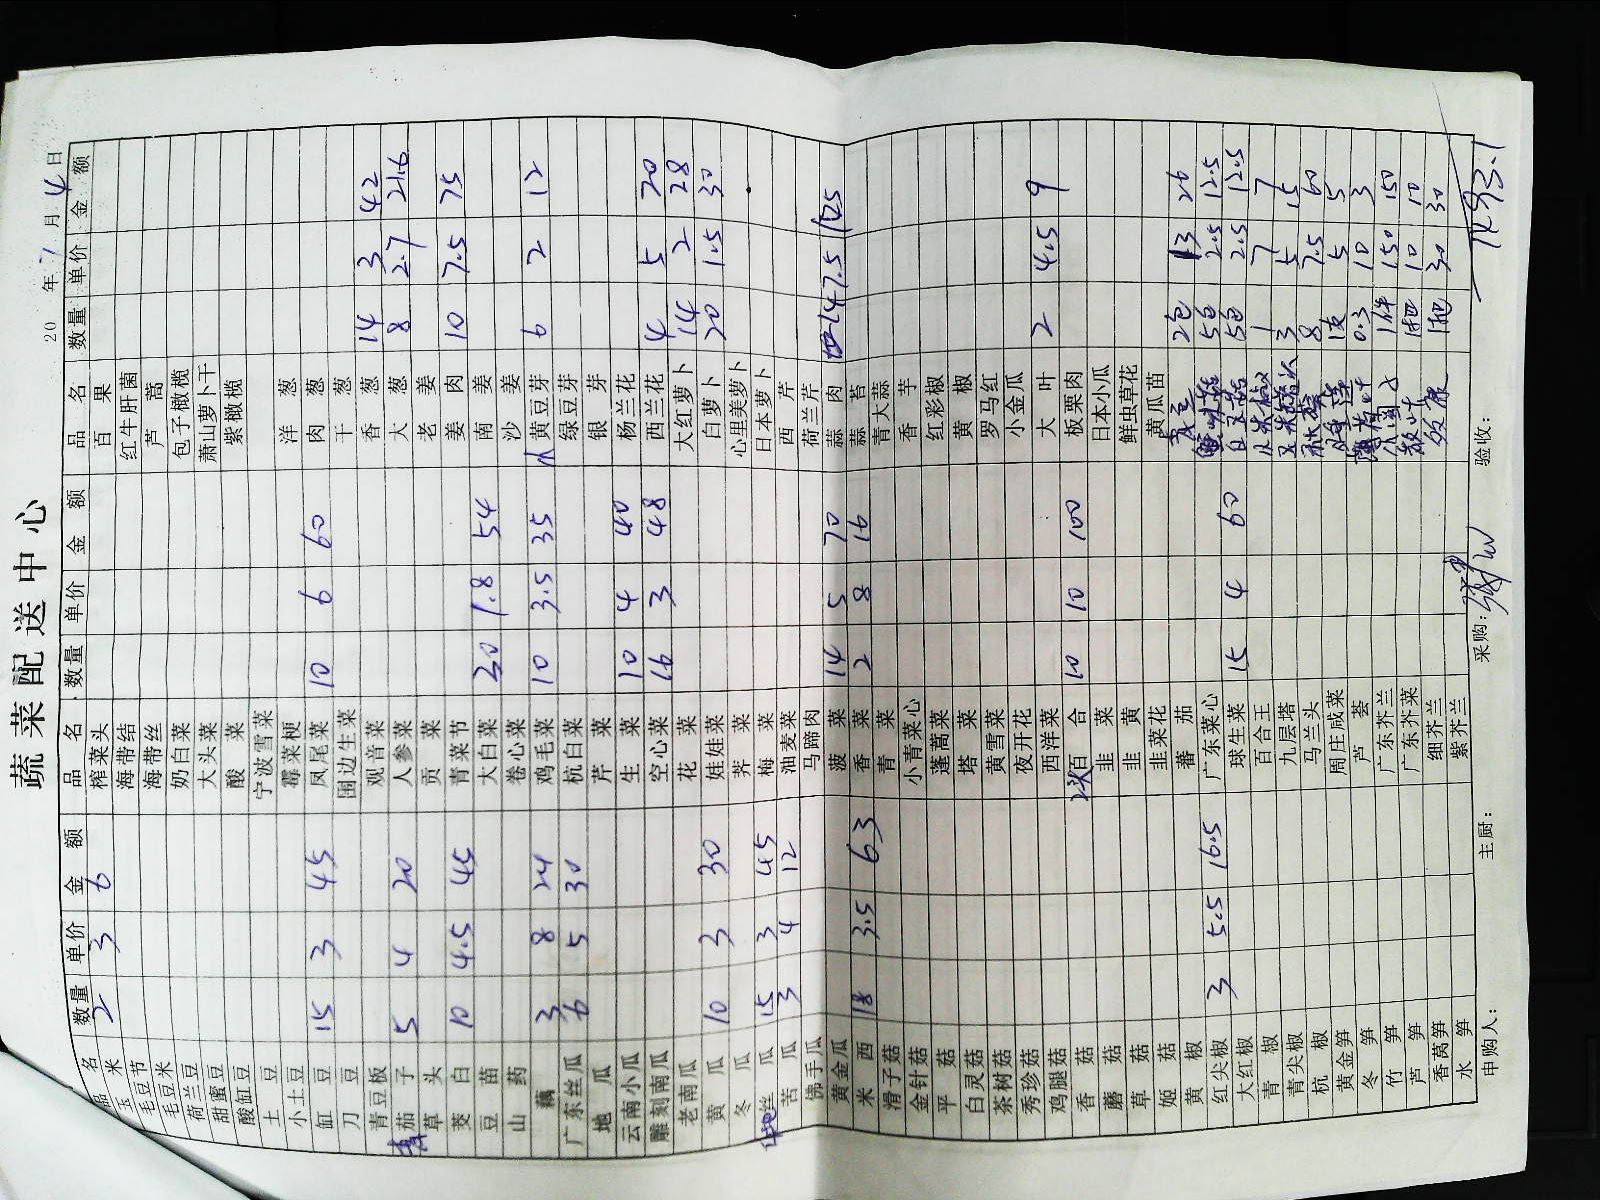 蔬菜配送中心
20 年 7 月 4 日
品名 数量 单价 金额 品名 数量 单价 金额 品名 数量 单价 金额
玉米 2 3 6 榨菜头 百果
毛豆节 海带结 红牛肝菌
毛豆米 海带丝 芦蒿
荷兰豆 奶白菜 包子橄榄
甜蜜豆 大头菜 萧山萝卜干
酸豇豆 酸菜 紫橄榄
土豆 宁波雪菜
小土豆 霉菜梗 洋葱
豇豆 15 3 45 凤尾菜 10 6 60 肉葱
刀豆 围边生菜 干葱
青豆板 观音菜 香葱 14 3 42
茄子 5 4 20 人参菜 大葱 8 2.7 21.6
草头 贡菜 老姜
茭白 10 4.5 45 青菜节 姜肉 10 7.5 75
豆苗 大白菜 30 1.8 54 南姜
山药 卷心菜 沙姜
藕 3 8 24 鸡毛菜 10 3.5 35 黄豆芽 6 2 12
广东丝瓜 6 5 30 杭白菜 绿豆芽
地瓜 芹菜 银芽
云南小瓜 生菜 10 4 40 杨兰花
雕刻南瓜 空心菜 16 3 48 西兰花 4 5 20
老南瓜 花菜 大红萝卜 14 2 28
黄瓜 10 3 30 娃娃菜 白萝卜 20 1.5 30
冬瓜 荠菜 心里美萝卜
丝瓜 15 3 45 梅菜 日本萝卜
苦瓜 3 4 12 油麦菜 西芹
佛手瓜 马蹄肉 荷兰芹
黄金瓜 菠菜 14 5 70 蒜肉 14 7.5 105
米西 18 3.5 63 香菜 2 8 16 蒜苔
滑子菇 青菜 青大蒜
金针菇 小青菜心 香芋
平菇 蓬蒿菜 红彩椒
白灵菇 塔菜 黄椒
茶树菇 黄雪菜 罗马红
秀珍菇 夜开花 小金瓜
鸡腿菇 西洋菜 大叶 2 4.5 9
香菇 百合 10 10 100 板栗肉
蘑菇 韭菜 日本小瓜
草菇 韭黄 鲜虫草花
姬菇 韭菜花 黄瓜苗
黄椒 番茄 2包 13 26
红尖椒 3 5.5 16.5 广东菜心 5包 2.5 12.5
大红椒 球生菜 15 4 60 5包 2.5 12.5
青椒 百合王 1 7 7
青尖椒 九层塔 3 5 15
杭椒 马兰头 8 7.5 60
黄金笋 周庄咸菜 1支 5 5
冬笋 芦荟 0.3 10 3
竹笋 广东芥兰 1件 150 150
芦笋 广东芥菜 1把 10 10
香莴笋 细芥兰 1把 30 30
水笋 紫芥兰
申购人： 主厨： 采购： 验收： 1493.1